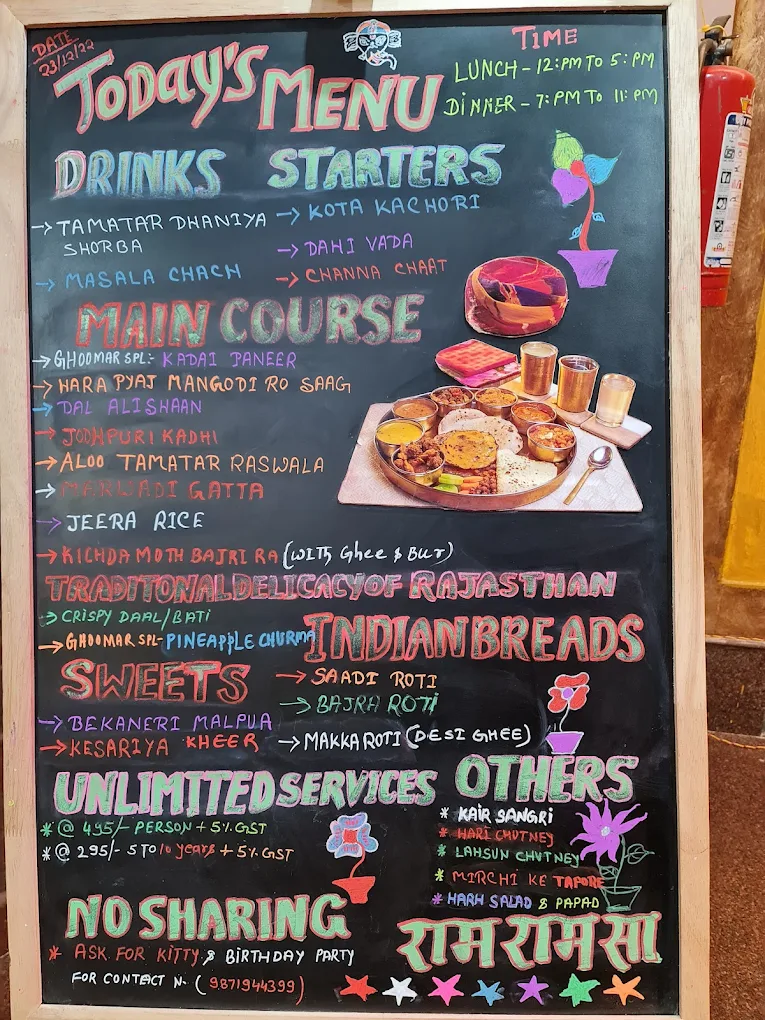 DATE
23/12/22
TODAY'S MENU
TIME
LUNCH - 12:PM TO 5:PM
DINNER - 7:PM TO 11:PM
DRINKS
→ TAMATAR DHANIYA
SHORBA
→ MASALA CHACH
STARTERS
→ KOTA KACHORI
→ DAHI VADA
→ CHANNA CHAAT
MAIN COURSE
→ GHOOMAR SPL:- KADAI PANEER
→ HARA PYAJ MANGODI RO SAAG
→ DAL ALISHAAN
→ JODHPURI KADHI
→ ALOO TAMATAR RASWALA
→ MARWADI GATTA
→ JEERA RICE
→ KICHDA MOTH BAJRI RA (WITH Ghee & BUR)
TRADITONAL DELICACY OF RAJASTHAN
→ CRISPY DAAL/BATI
→ GHOOMAR SPL- PINEAPPLE CHURMA
INDIAN BREADS
→ SAADI ROTI
→ BAJRA ROTI
→ MAKKA ROTI (DESI GHEE)
SWEETS
→ BEKANERI MALPUA
→ KESARIYA KHEER
UNLIMITED SERVICES
* @ 495/- PERSON + 5% GST
* @ 295/- 5 TO 10 years + 5% GST
OTHERS
* KAIR SANGRI
* HARI CHUTNEY
* LAHSUN CHUTNEY
* MIRCHI KE TAPORE
* HARH SALAD & PAPAD
NO SHARING
* ASK FOR KITTY & BIRTHDAY PARTY
FOR CONTACT N. (9871944399)
राम राम सा